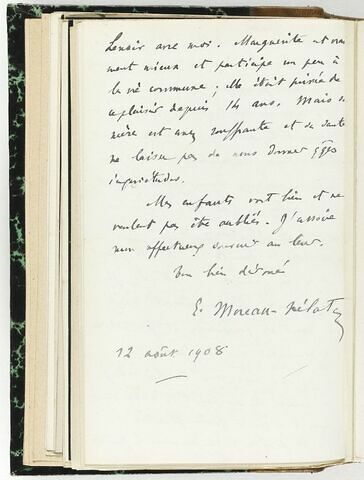 Lenoir avec moi. Marguerite est vrai
ment mieux et participe un peu à
la vie commune ; elle était privée de
ce plaisir depuis 14 ans. Mais sa
mère est assez souffrante et sa santé
ne laisse pas de nous donner qques
inquiétudes.
Mes enfants vont bien et ne
veulent pas être oubliés. J'associe
mon affectueux souvenir au leur.
Ton bien dévoué
E. Moreau-Nélaton
12 août 1908